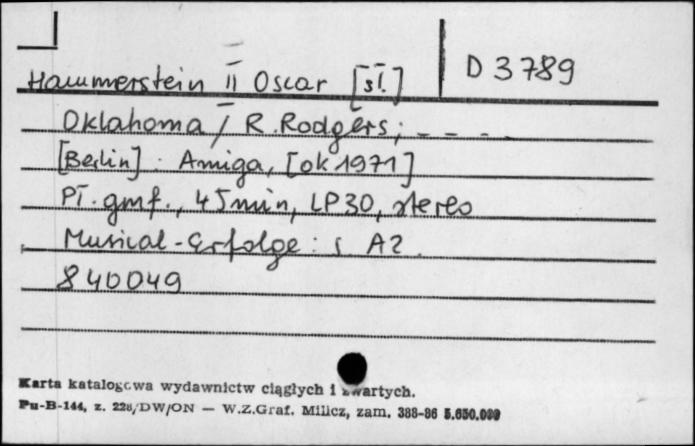 D 3789
Hammerstein II Oscar [sł.]
Oklahoma / R. Rodgers; - - - -
[Berlin] : Amiga, [ok 1971]
Pł. gmf., 45 min, LP30, stereo
Musical-Erfolge : s A2.
840049
Karta katalogowa wydawnictw ciągłych i zwartych.
Pu-B-144, z. 228/DW/ON — W.Z.Graf. Milicz, zam. 388-86 5.650.000